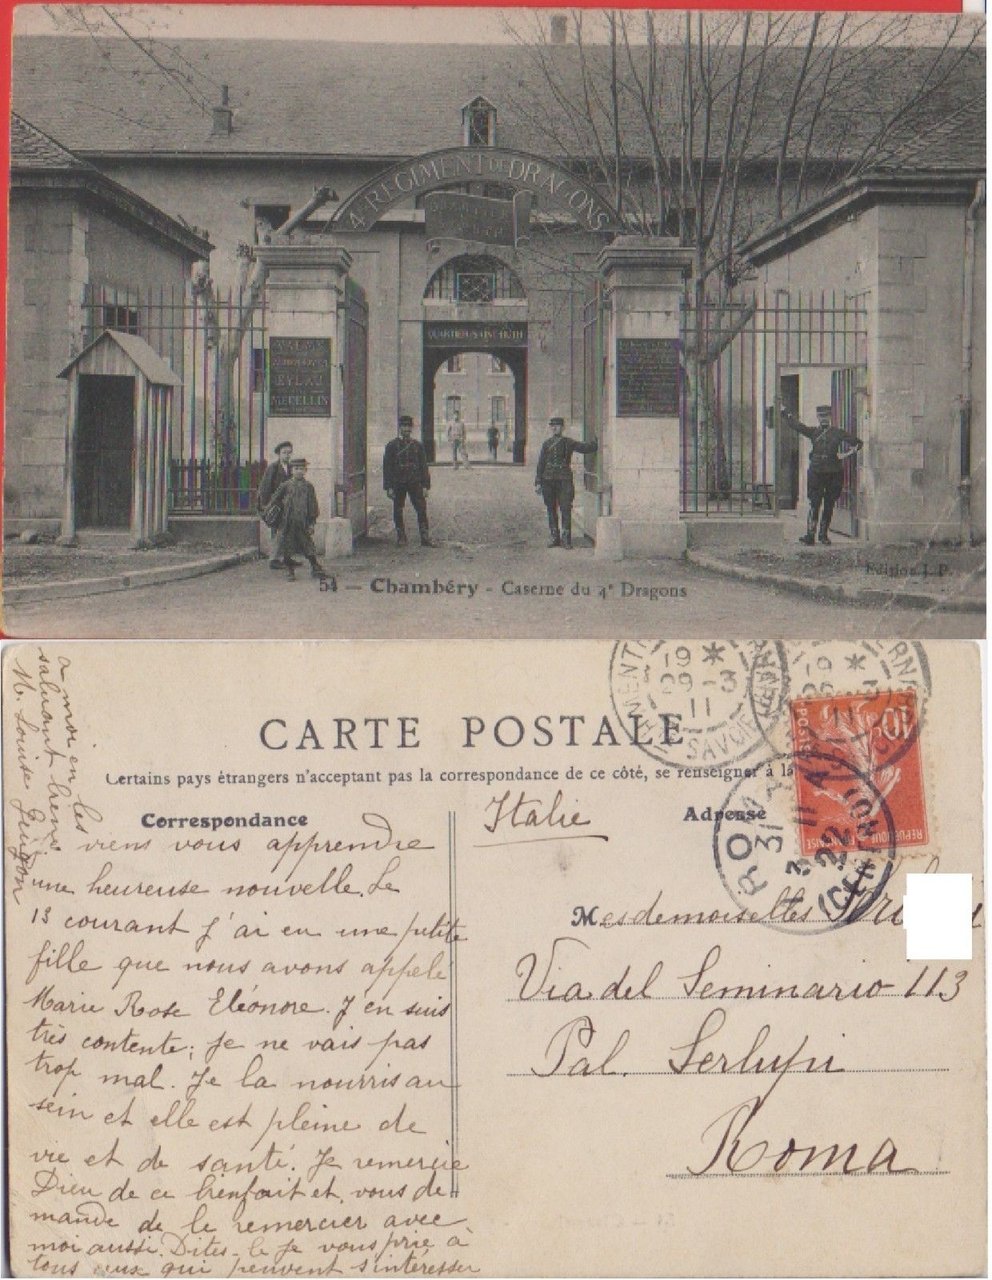 4e REGIMENT DE DRAGONS
QUARTIER
VALMY
EYLAU
MEDELLIN
54 — Chambéry - Caserne du 4e Dragons
Edition J. P.
CARTE POSTALE
Certains pays étrangers n'acceptant pas la correspondance de ce côté, se renseigner à la
Correspondance
Adresse
viens vous apprendre
une heureuse nouvelle. Le
13 courant j'ai eu une petite
fille que nous avons appelé
Marie Rose Eléonore. J'en suis
très contente; je ne vais pas
trop mal. Je la nourris au
sein et elle est pleine de
vie et de santé. Je remercie
Dieu de ce bienfait et vous de
mande de le remercier avec
moi aussi. Dites-le je vous prie à
tous ceux qui peuvent s'intéresser
à moi en les
saluant bien
M. Louise
Italie
Mesdemoiselles
Via del Seminario 113
Pal. Serlupi
Roma
19 *
29-3
11
SAVOIE
19 *
3
11
10
POSTES
REPUBLIQUE FRANÇAISE
ROMA
31
3
11
22
(CENTRO)